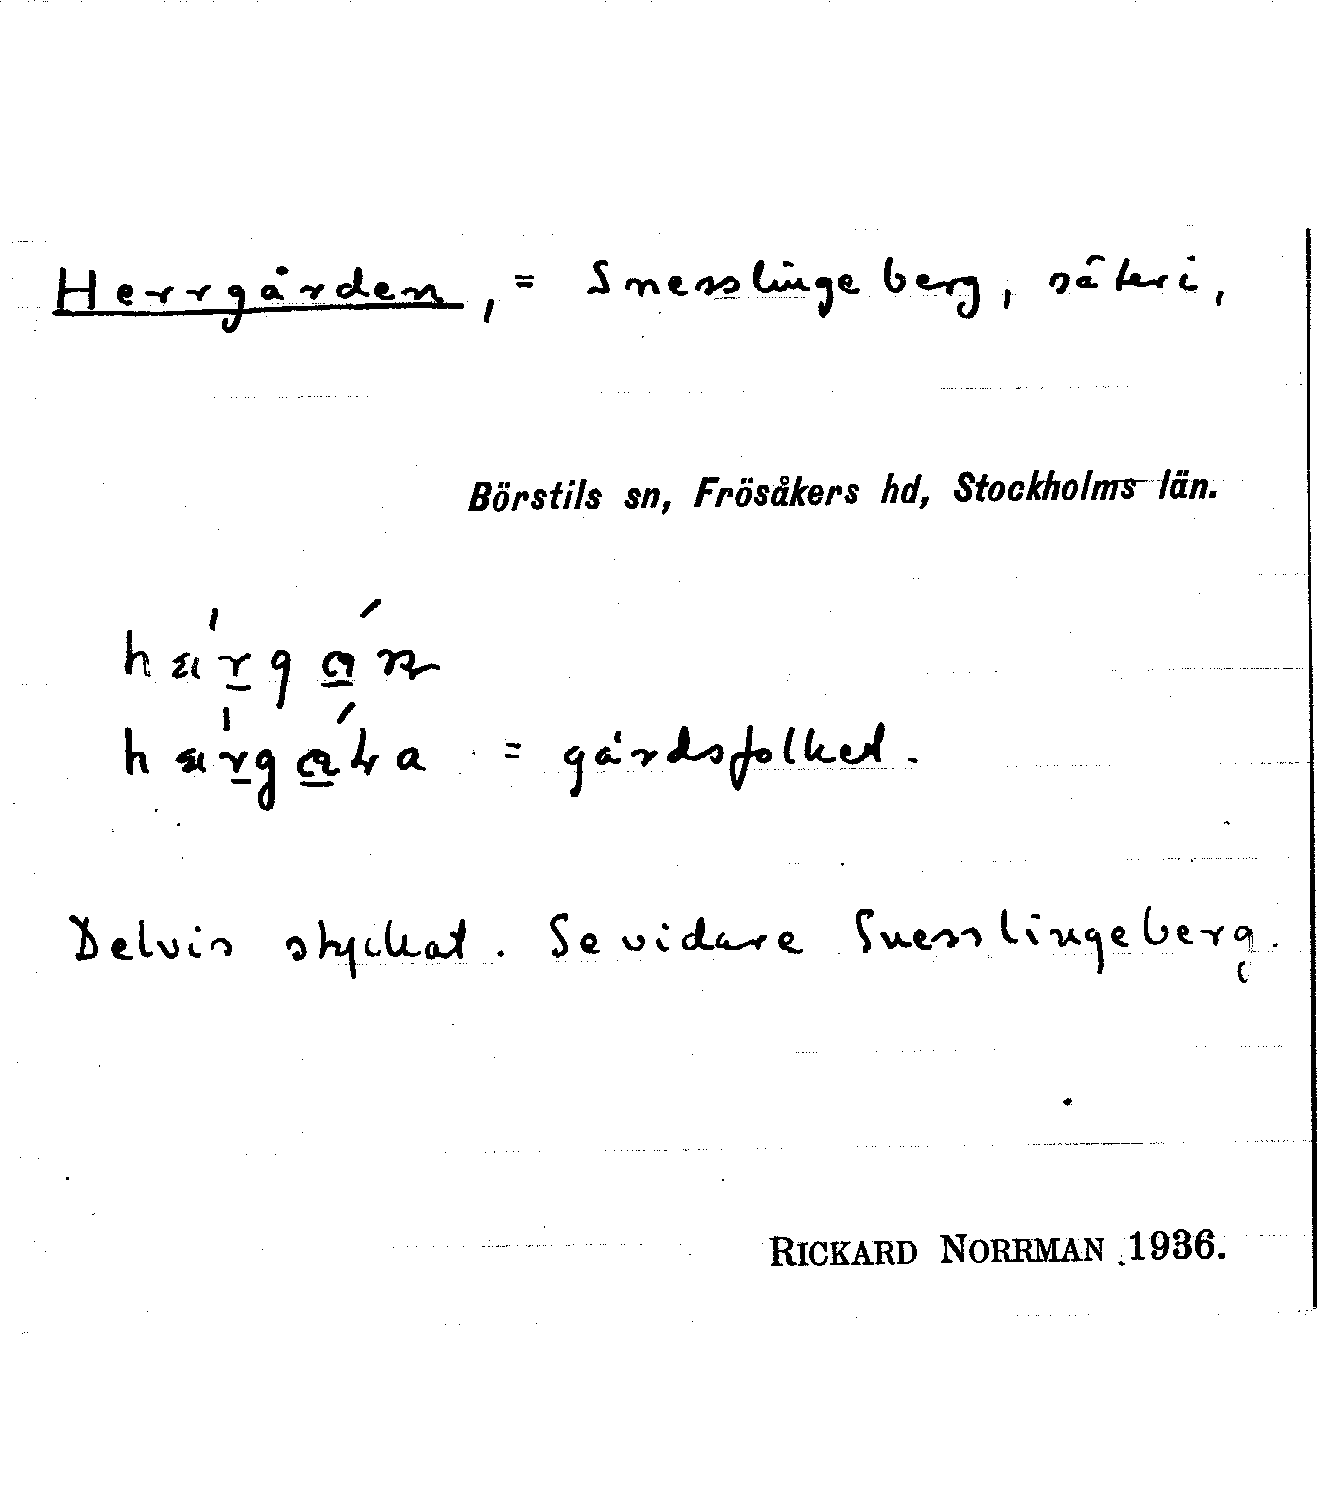 Herrgården, = Snesslingeberg, säteri,
Börstils sn, Frösåkers hd, Stockholms län.
= gårdsfolket.
Delvis styckat. Se vidare Snesslingeberg.
RICKARD NORRMAN 1936.